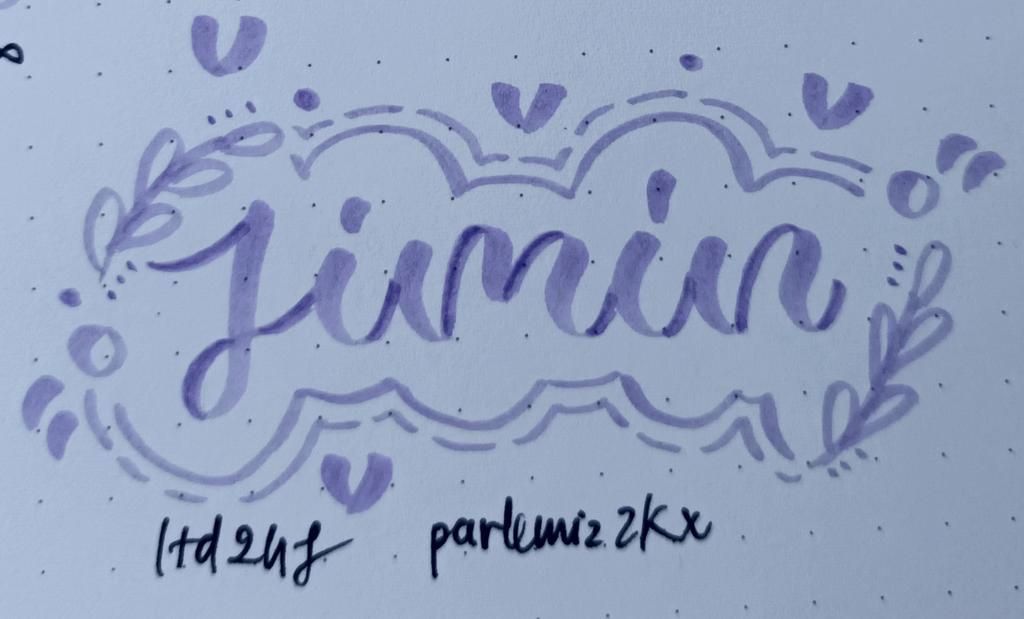 8
Jimin
ltd24f parlemiz2kx